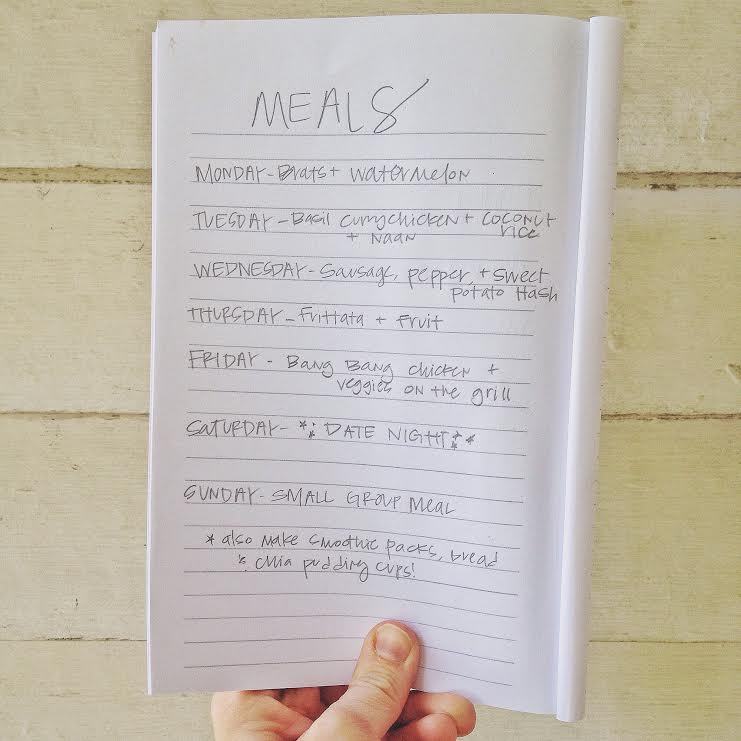 MEALS
MONDAY - Brats + watermelon
TUESDAY - Basil curry chicken + coconut
rice
+ Naan
WEDNESDAY - Sausage, pepper, + sweet
potato Hash
THURSDAY - Frittata + Fruit
FRIDAY - Bang Bang chicken +
veggies on the grill
SATURDAY - ** DATE NIGHT **
SUNDAY - SMALL GROUP MEAL
* also make smoothie packs, bread
& chia pudding cups!